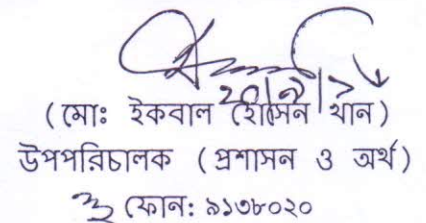 ২০।৯।১৮
(মোঃ ইকবাল হোসেন খান)
উপপরিচালক (প্রশাসন ও অর্থ)
ফোন: ৯১৩৮০২০